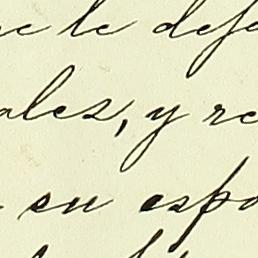 le defe
ales, y re
en espa